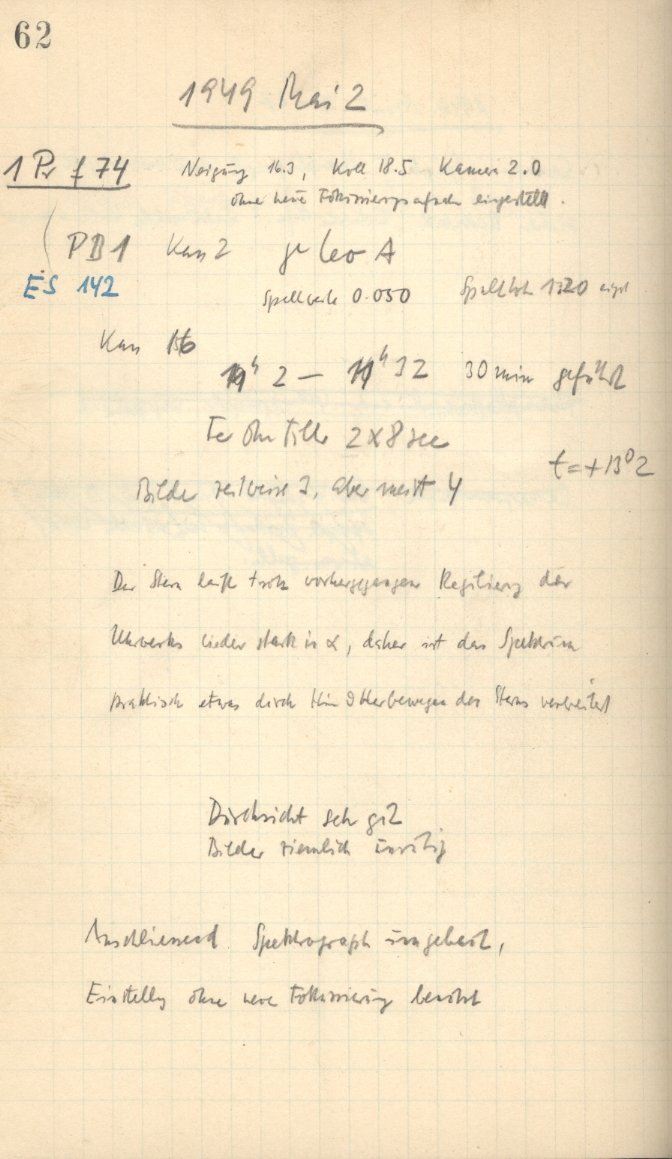 62
1949 Mai 2
1 Pr f 74 Neigung 16.3, Koll 18.5 Kamera 2.0
ohne neue Fokussierungsaufnahm eingestellt.
PB1 Kass 2 γ Leo A
ES 142
Spaltweite 0.050 Spalthöhe 1320
Kass 156
19ʰ 2 – 19ʰ 32 30 min geführt
Fe ohne Filter 2×8 sec
t = + 13°2
Bilder teilweise 3, aber meist 4
Der Stern läuft trotz vorhergegangener Regulierung des
Uhrwerks wieder stark in α, daher ist das Spektrum
praktisch etwas durch Hin & Herbewegen des Sterns verbreitert
Durchsicht sehr gut
Bilder ziemlich unruhig
Anschliessend Spektrograph umgebaut,
Einstellg ohne neue Fokussierung benützt